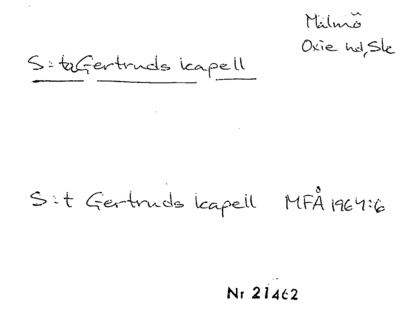 Malmö
Oxie hd, Sk
S:ta Gertruds kapell
S:t Gertruds kapell MFÅ 1964:6
Nr 21462